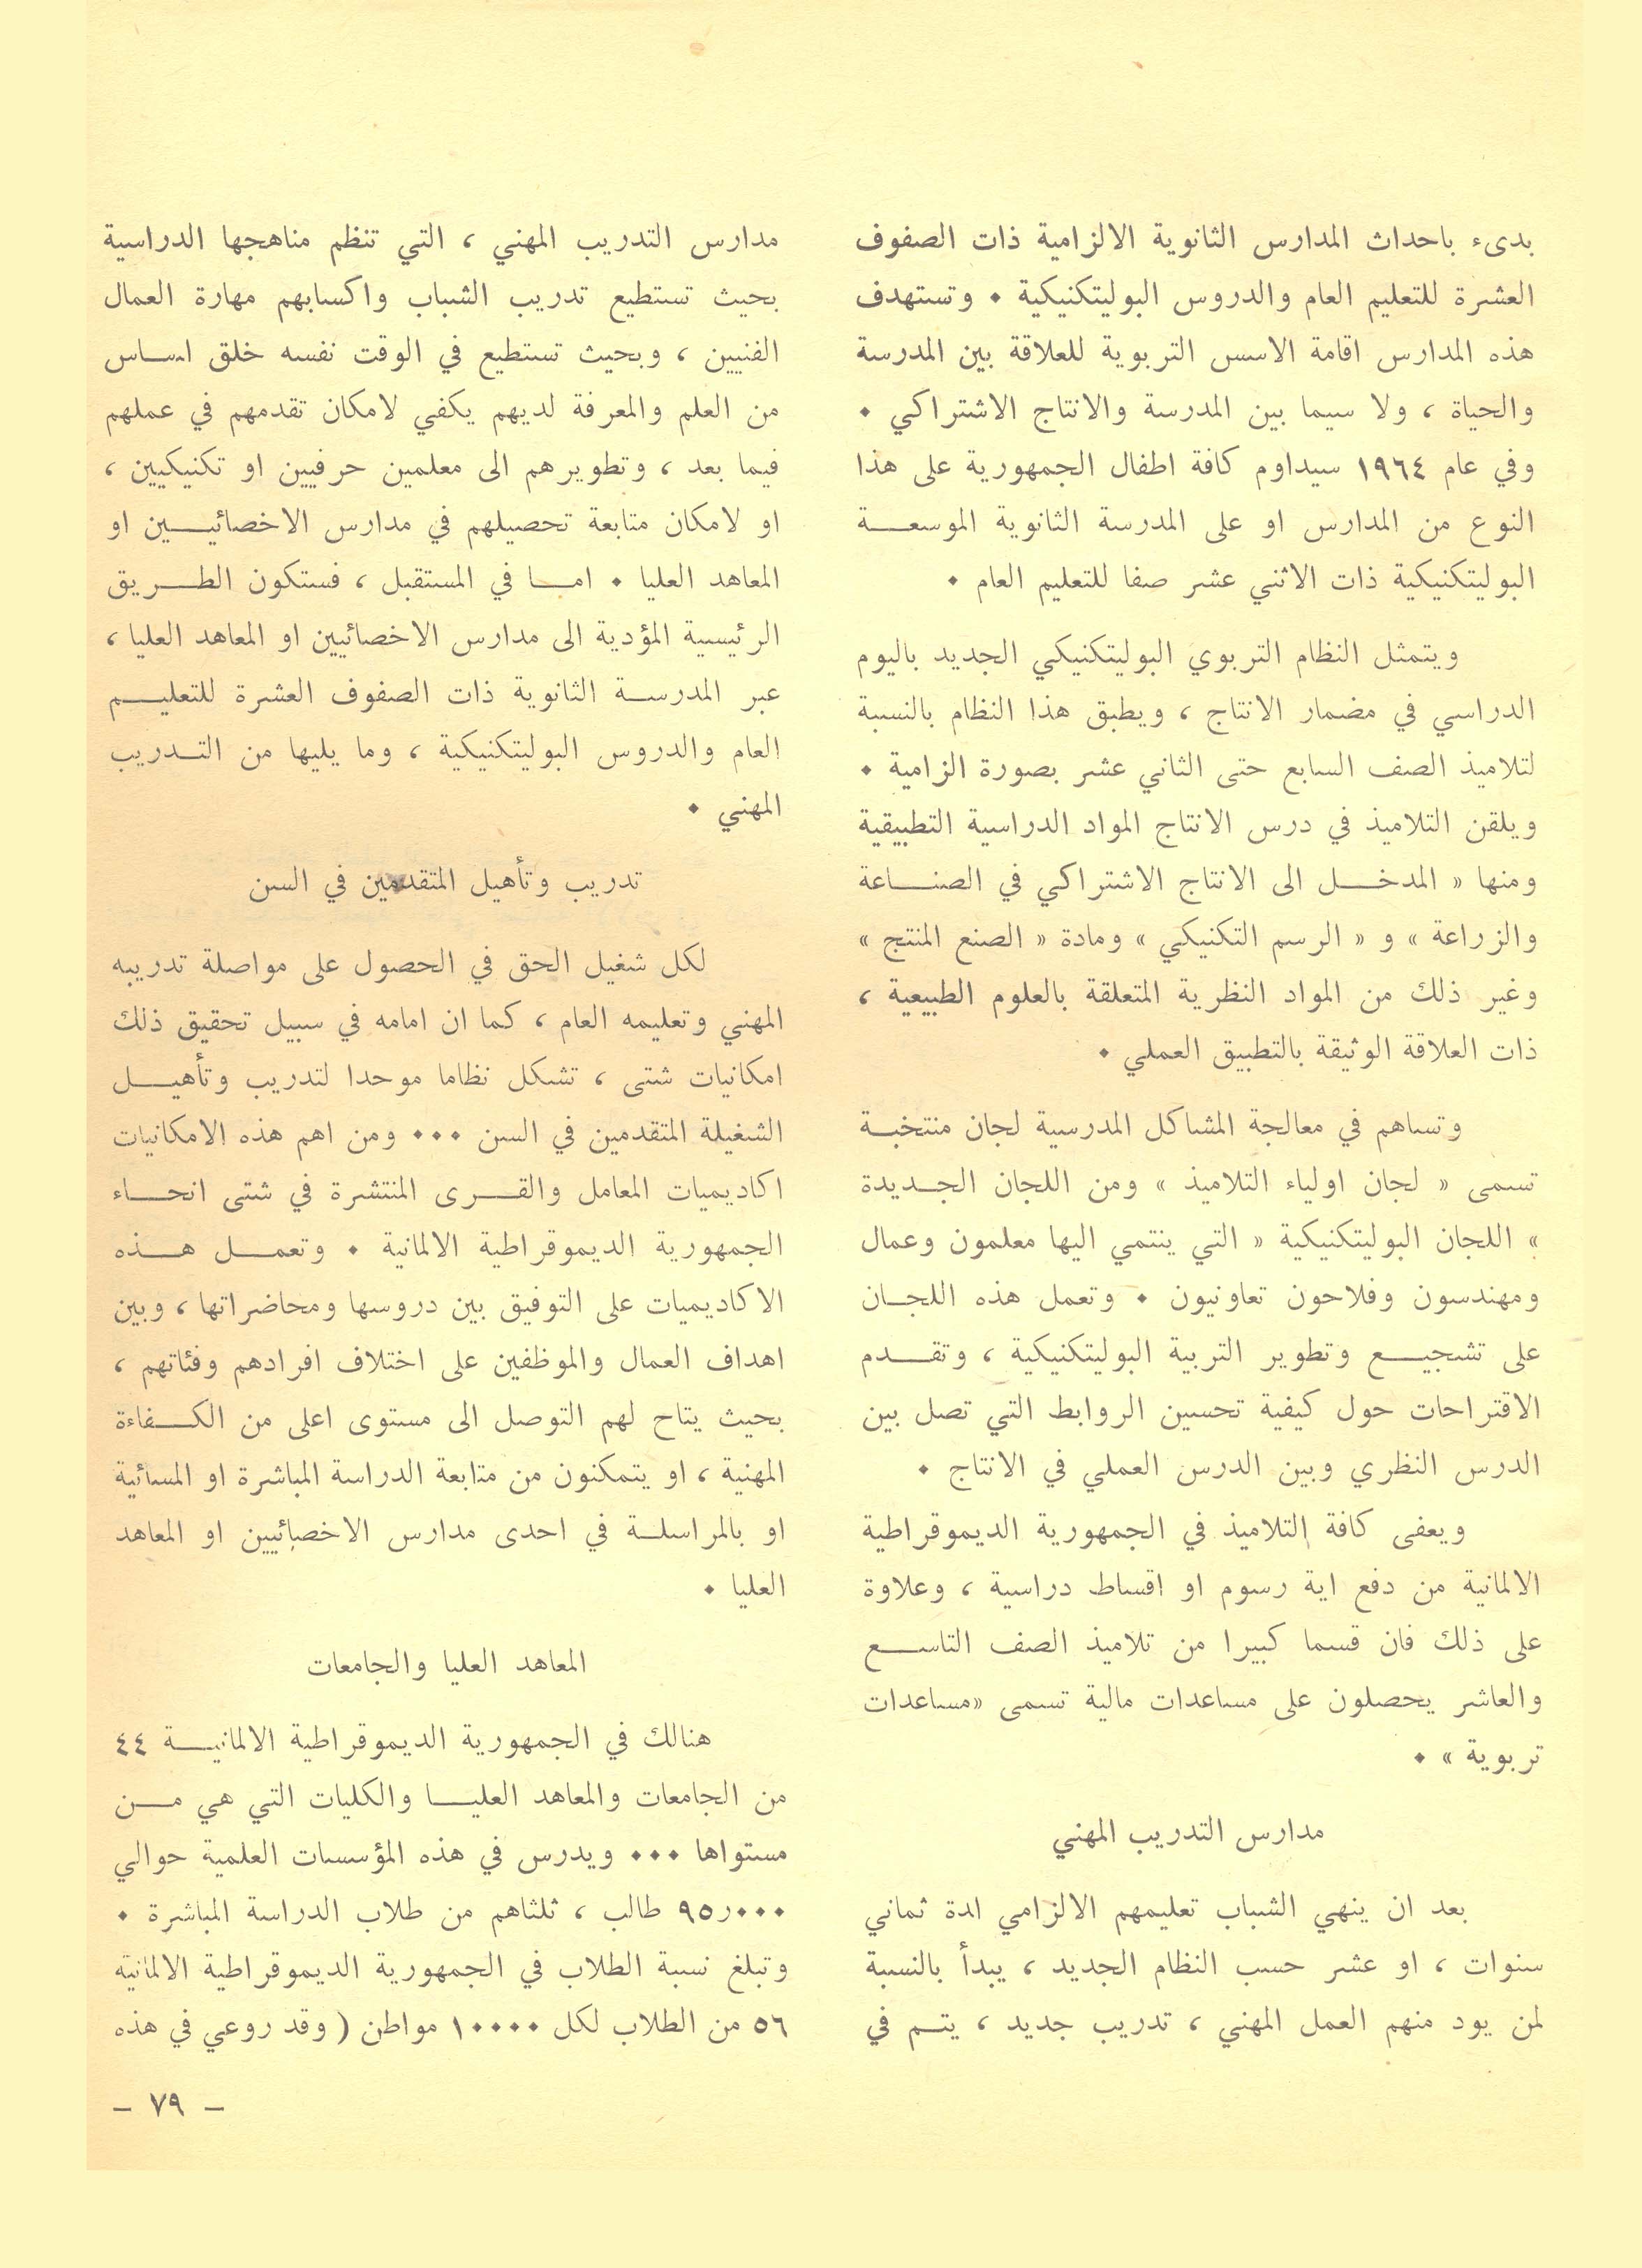 بدىء باحداث المدارس الثانوية الالزامية ذات الصفوف
العشرة للتعليم العام والدروس البوليتكنيكية ٠ وتستهدف
هذه المدارس اقامة الاسس التربوية للعلاقة بين المدرسة
والحياة ، ولا سيما بين المدرسة والانتاج الاشتراكي ٠
وفي عام ١٩٦٤ سيداوم كافة اطفال الجمهورية على هذا
النوع من المدارس او على المدرسة الثانوية الموسعة
البوليتكنيكية ذات الاثني عشر صفا للتعليم العام ٠
ويتمثل النظام التربوي البوليتكنيكي الجديد باليوم
الدراسي في مضمار الانتاج ، ويطبق هذا النظام بالنسبة
لتلاميذ الصف السابع حتى الثاني عشر بصورة الزامية ٠
ويلقن التلاميذ في درس الانتاج المواد الدراسية التطبيقية
ومنها « المدخل الى الانتاج الاشتراكي في الصناعة
والزراعة » و « الرسم التكنيكي » ومادة « الصنع المنتج »
وغير ذلك من المواد النظرية المتعلقة بالعلوم الطبيعية ،
ذات العلاقة الوثيقة بالتطبيق العملي ٠
وتساهم في معالجة المشاكل المدرسية لجان منتخبة
تسمى « لجان اولياء التلاميذ » ومن اللجان الجديدة
» اللجان البوليتكنيكية « التي ينتمي اليها معلمون وعمال
ومهندسون وفلاحون تعاونيون ٠ وتعمل هذه اللجان
على تشجيع وتطوير التربية البوليتكنيكية ، وتقدم
الاقتراحات حول كيفية تحسين الروابط التي تصل بين
الدرس النظري وبين الدرس العملي في الانتاج ٠
ويعفى كافة التلاميذ في الجمهورية الديموقراطية
الالمانية من دفع اية رسوم او اقساط دراسية ، وعلاوة
على ذلك فان قسما كبيرا من تلاميذ الصف التاسع
والعاشر يحصلون على مساعدات مالية تسمى «مساعدات
تربوية » ٠
مدارس التدريب المهني
بعد ان ينهي الشباب تعليمهم الالزامي لمدة ثماني
سنوات ، او عشر حسب النظام الجديد ، يبدأ بالنسبة
لمن يود منهم العمل المهني ، تدريب جديد ، يتم في
مدارس التدريب المهني ، التي تنظم مناهجها الدراسية
بحيث تستطيع تدريب الشباب واكسابهم مهارة العمال
الفنيين ، وبحيث تستطيع في الوقت نفسه خلق اساس
من العلم والمعرفة لديهم يكفي لامكان تقدمهم في عملهم
فيما بعد ، وتطويرهم الى معلمين حرفيين او تكنيكيين ،
او لامكان متابعة تحصيلهم في مدارس الاخصائيين او
المعاهد العليا ٠ اما في المستقبل ، فستكون الطريق
الرئيسية المؤدية الى مدارس الاخصائيين او المعاهد العليا ،
عبر المدرسة الثانوية ذات الصفوف العشرة للتعليم
العام والدروس البوليتكنيكية ، وما يليها من التدريب
المهني ٠
تدريب وتأهيل المتقدمين في السن
لكل شغيل الحق في الحصول على مواصلة تدريبه
المهني وتعليمه العام ، كما ان امامه في سبيل تحقيق ذلك
امكانيات شتى ، تشكل نظاما موحدا لتدريب وتأهيل
الشغيلة المتقدمين في السن ٠٠٠ ومن اهم هذه الامكانيات
اكاديميات المعامل والقرى المنتشرة في شتى انحاء
الجمهورية الديموقراطية الالمانية ٠ وتعمل هذه
الاكاديميات على التوفيق بين دروسها ومحاضراتها ، وبين
اهداف العمال والموظفين على اختلاف افرادهم وفئاتهم ،
بحيث يتاح لهم التوصل الى مستوى اعلى من الكفاءة
المهنية ، او يتمكنون من متابعة الدراسة المباشرة او المسائية
او بالمراسلة في احدى مدارس الاخصائيين او المعاهد
العليا ٠
المعاهد العليا والجامعات
هنالك في الجمهورية الديموقراطية الالمانية ٤٤
من الجامعات والمعاهد العليا والكليات التي هي من
مستواها ٠٠٠ ويدرس في هذه المؤسسات العلمية حوالي
٩٥ر٠٠٠ طالب ، ثلثاهم من طلاب الدراسة المباشرة ٠
وتبلغ نسبة الطلاب في الجمهورية الديموقراطية الالمانية
٥٦ من الطلاب لكل ١٠٠٠٠ مواطن ( وقد روعي في هذه
– ٧٩ –